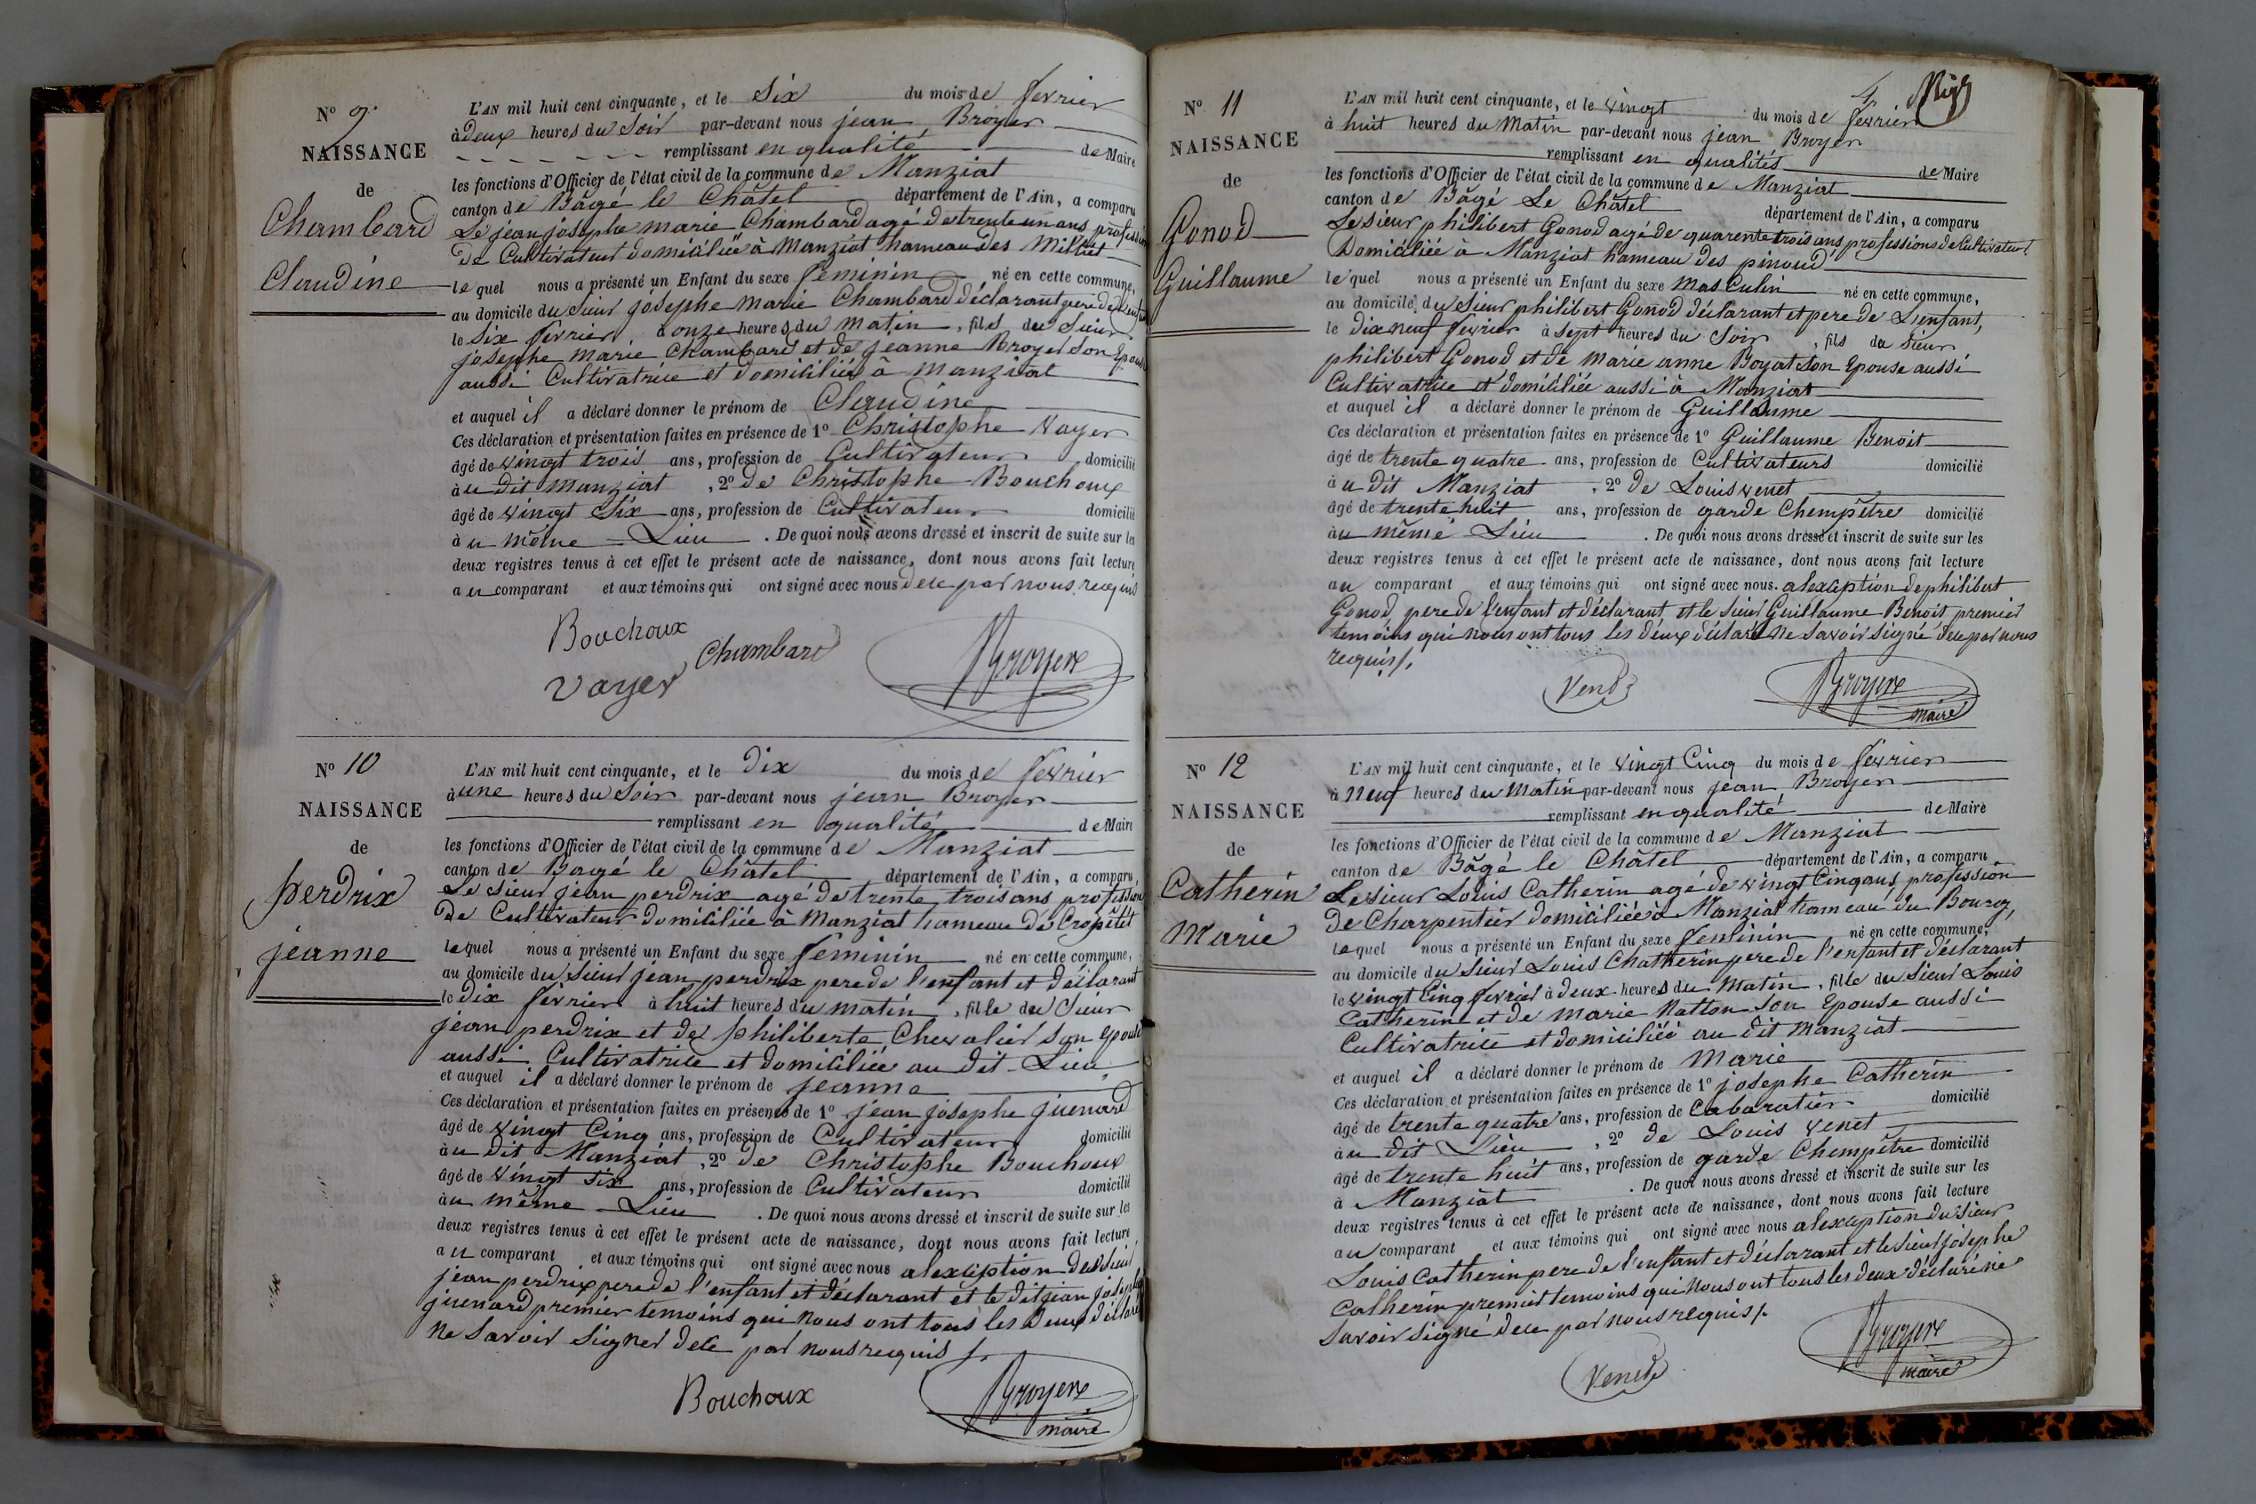 N° 9.
NAISSANCE
de
Chambard
Claudine
L'AN mil huit cent cinquante, et le six du mois de fevrier
à deux heures du Soir par-devant nous jean Broyer
remplissant en qualité de Maire
les fonctions d'Officier de l'état civil de la commune de Manziat
canton de Bâgé le Châtel département de l'Ain, a comparu
Le jean josephe marie Chambard agé de trente un ans profession
de Cultivateur domiciliée à Manziat hameau des
le quel nous a présenté un Enfant du sexe feminin né en cette commune,
au domicile du sieur josephe marie Chambard déclarant pere de l'enfant
le six fevrier à onze heures du matin, fils du Sieur
josephe marie Chambard et de jeanne Broyer son Epouse
aussi Cultivatrice et domiciliée à manziat
et auquel il a déclaré donner le prénom de Claudine
Ces déclaration et présentation faites en présence de 1° Christophe Vayer
âgé de vingt trois ans, profession de Cultivateur domicilié
à u dit manziat, 2° de Christophe Bouchoux
âgé de vingt Six ans, profession de Cultivateur domicilié
à u même Lieu. De quoi nous avons dressé et inscrit de suite sur les
deux registres tenus à cet effet le présent acte de naissance, dont nous avons fait lecture
a u comparant et aux témoins qui ont signé avec nous dece par nous requis
Bouchoux
Chambard
Vayer
Broyere
N° 10
NAISSANCE
de
perdrix
jeanne
L'AN mil huit cent cinquante, et le dix du mois de fevrier
à une heures du Soir par-devant nous jean Broyer
remplissant en qualité de Maire
les fonctions d'Officier de l'état civil de la commune de Manziat
canton de Bagé le Châtel département de l'Ain, a comparu,
Le sieur jean perdrix agé de trente trois ans profession
de Cultivateur domiciliée à Manziat hameau de Cropétet
le quel nous a présenté un Enfant du sexe feminin né en cette commune,
au domicile du sieur jean perdrix pere de l'enfant et déclarant
le dix fevrier à huit heures du matin, fille du Sieur
jean perdrix et de philiberte Chevalier son epouse
aussi Cultivatrice et domiciliée au dit Lieu
et auquel il a déclaré donner le prénom de jeanne
Ces déclaration et présentation faites en présence de 1° jean josephe guenard
âgé de vingt Cinq ans, profession de Cultivateur domicilié
à u dit Manziat, 2° de Christophe Bouchoux
âgé de vingt six ans, profession de Cultivateur domicilié
à u même Lieu. De quoi nous avons dressé et inscrit de suite sur les
deux registres tenus à cet effet le présent acte de naissance, dont nous avons fait lecture,
a u comparant et aux témoins qui ont signé avec nous alexception du sieur
jean perdrix pere de l'enfant et déclarant et le dit jean josephe
guenard premier temoins qui nous ont tous les deux déclaré
ne Savoir Signer dece par nous requis
Bouchoux
Broyere
maire
4
N° 11
NAISSANCE
de
Gonod
Guillaume
L'AN mil huit cent cinquante, et le vingt du mois de fevrier
à huit heures du Matin par-devant nous jean Broyer
remplissant en qualités de Maire
les fonctions d'Officier de l'état civil de la commune de Manziat
canton de Bâgé Le Châtel département de l'Ain, a comparu
Le sieur philibert Gonod agé de quarente trois ans professions de Cultivateur
Domiciliée à Manziat hameau des pinoud
le quel nous a présenté un Enfant du sexe masculin né en cette commune,
au domicile du sieur philibert Gonod déclarant et pere de L'enfant,
le dix neuf fevrier à sept heures du Soir, fils du sieur
philibert Gonod et de marie anne Boyat son Epouse aussi
Cultivatrice et domiciliée aussi à Manziat
et auquel il a déclaré donner le prénom de Guillaume
Ces déclaration et présentation faites en présence de 1° Guillaume Benoit
âgé de trente quatre ans, profession de Cultivateurs domicilié
à u dit Manziat, 2° de Louis venet
âgé de trente huit ans, profession de garde Chempêtre domicilié
à u même Lieu. De quoi nous avons dressé et inscrit de suite sur les
deux registres tenus à cet effet le présent acte de naissance, dont nous avons fait lecture
a u comparant et aux témoins qui ont signé avec nous. alexception de philibert
Gonod, pere de l'enfant et déclarant, et le sieur Guillaume Benoit premier
temoins qui nous ont tous les deux déclaré ne Savoir signé dece par nous
requis
Broyere
maire
N° 12
NAISSANCE
de
Catherin
Marie
L'AN mil huit cent cinquante, et le vingt Cinq du mois de fevrier
à neuf heures du Matin par-devant nous jean Broyer
remplissant en qualité de Maire
les fonctions d'Officier de l'état civil de la commune de Manziat
canton de Bâgé le Châtel département de l'Ain, a comparu
Le sieur Louis Catherin agé de vingt Cinq ans profession
de Charpentier domiciliée à Manziat hameau du Bourg,
le quel nous a présenté un Enfant du sexe feminin né en cette commune,
au domicile du sieur Louis Chatherin pere de l'enfant et déclarant
le vingt Cinq fevrier à deux heures du Matin, fille du sieur Louis
Catherin et de marie Natton son Epouse aussi
Cultivatrice et domiciliée au dit manziat
et auquel il a déclaré donner le prénom de Marie
Ces déclaration et présentation faites en présence de 1° josephe Catherin
âgé de trente quatre ans, profession de Cabaratier domicilié
à u dit Lieu, 2° de Louis venet
âgé de trente huit ans, profession de garde Chempêtre domicilié
à Manziat. De quoi nous avons dressé et inscrit de suite sur les
deux registres tenus à cet effet le présent acte de naissance, dont nous avons fait lecture
a u comparant et aux témoins qui ont signé avec nous alexception du sieur
Louis Catherin pere de l'enfant et déclarant et le sieur josephe
Catherin premier temoins qui nous ont tous les deux déclaré ne
Savoir signé dece par nous requis
Broyere
maire